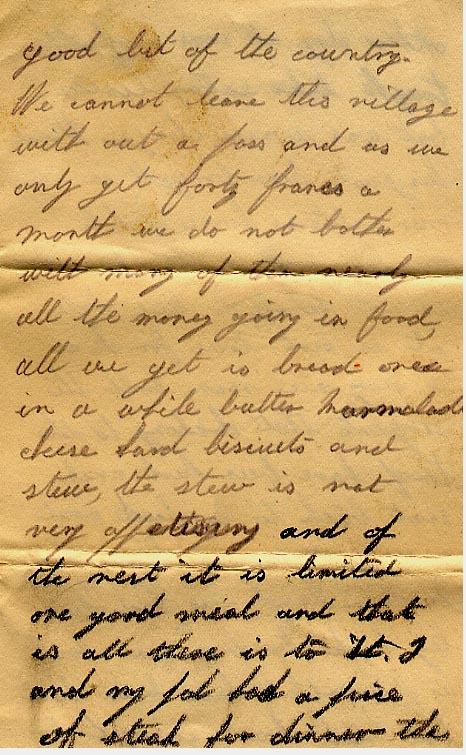 good bit of the country.
We cannot leave this village
with out a pass and as we
only get forty francs a
month we do not bother
with many of them nearly
all the money going in food,
all we get is bread once
in a while butter marmalade
cheese hard biscuits and
stew, the stew is not
very appetising and of
the rest it is limited
one good meal and that
is all there is to it. I
and my pal had a piece
of steak for dinner the